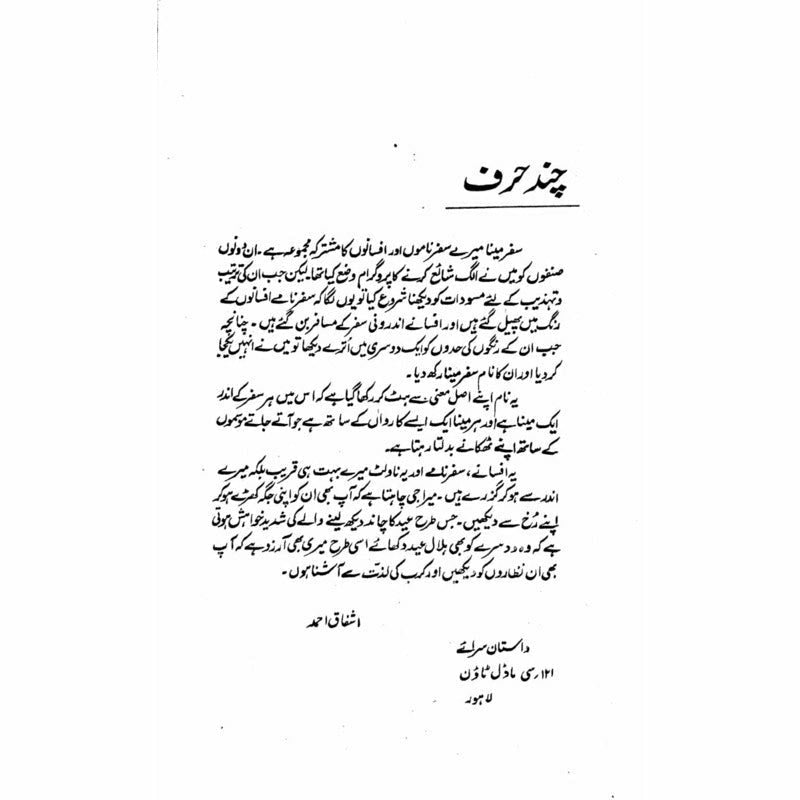 چند حرف
سفر مینا میرے سفرناموں اور افسانوں کا مشترکہ مجموعہ ہے۔ ان دونوں
صنفوں کو میں نے الگ شائع کرنے کا پروگرام وضع کیا تھا۔ لیکن جب ان کی ترتیب
و تہذیب کے لئے مسودات کو دیکھنا شروع کیا تو یوں لگا کہ سفرنامے افسانوں کے
رنگ میں پھیل گئے ہیں اور افسانے اندرونی سفر کے مسافر بن گئے ہیں۔ چنانچہ
جب ان کے رنگوں کی حدوں کو ایک دوسری میں اُترے دیکھا تو میں نے انہیں یکجا
کر دیا اور ان کا نام سفر مینا رکھ دیا۔
یہ نام اپنے اصل معنی سے ہٹ کر رکھا گیا ہے کہ اس میں ہر سفر کے اندر
ایک مینا ہے اور ہر مینا ایک ایسے کارواں کے ساتھ ہے جو آتے جاتے موسموں
کے ساتھ اپنے ٹھکانے بدلتا رہتا ہے۔
یہ افسانے، سفرنامے اور یہ ناولٹ میرے بہت ہی قریب بلکہ میرے
اندر سے ہو کر گزرے ہیں۔ میرا جی چاہتا ہے کہ آپ بھی ان کو اپنی جگہ کھڑے ہو کر
اپنے رُخ سے دیکھیں۔ جس طرح عید کا چاند دیکھ لینے والے کی شدید خواہش ہوتی
ہے کہ وہ دوسرے کو بھی ہلال عید دکھائے اسی طرح میری بھی آرزو ہے کہ آپ
بھی ان نظاروں کو دیکھیں اور کرب کی لذت سے آشنا ہوں۔
اشفاق احمد
داستان سرائے
۱۲۱۔سی ماڈل ٹاؤن
لاہور